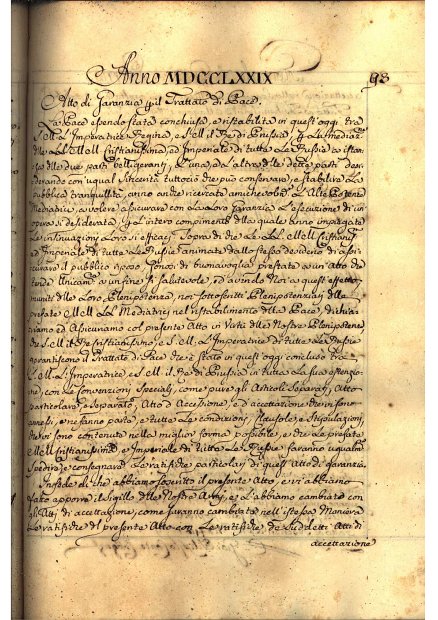 Anno MDCCLXXIX 93
Atto di Garanzia pel Trattato di Pace.
La Pace essendo stata conchiusa, e ristabilita in quest'oggi tra
S. M. L'Imperatrice Regina, e S. M. il Re di Prussia,
Cristianissima, ed Imperiale di tutte Le Russie
delle due parti belligeranti, L'una, e L'altra delle dette parti desi-
derando con ugual sincerità tuttociò che può conservare, e stabilire La
pubblica tranquillità, anno anche ricercate
a volere assicurare con La Loro Garanzia L'esecuzione di un'
opera sì desiderata, compimento della quale anno impiegate
Le insinuazioni Loro sì efficaci. Sopra di che Le
ed Imperiale di tutte Le Russie animate dallo stesso desiderio di assi-
curare il pubblico riposo
a un fine sì salutevole, ed avendo Noi a quest'effetto
muniti delle Loro Plenipotenze, noi sottoscritti Plenipotenziarj delle
prefate nel ristabilimento della Pace, dichia-
riamo ed Assicuriamo col presente Atto in Virtù delle Nostre Plenipotenze
che S. M. il Re Cristianissimo, e S. M. L'Imperatrice di tutte Le Russie
garantiscono il Trattato di Pace che è stato in quest'oggi concluso tra
S. M. L'Imperatrice, e S. M. il Re di Prussia in tutta La sua estenzio-
ne, con Le Convenzioni Speciali, come pure gli Articoli Separati, Atto
particolare, e Separato, Atto d'Accessione, e d'accettazione che vi sono
annessi, e ne fanno parte, e tutte Le condizioni, Clausole, e Stipulazioni,
che vi sono contenute nella miglior forma possibile, e che Le prefate
Cristianissima, e Imperiale di tutte Le Russie faranno ugualmte
Spedire, e consegnare Le ratifiche particolari di quest'Atto di garanzia.
In fede di che abbiamo sottoscritto il presente Atto, e vi abbiamo
fatto apporre il Sigillo delle Nostre Armi, e L'abbiamo cambiato con
gli Atti di accettazione, come saranno cambiate nell'istessa Maniera
Le ratifiche del presente Atto con Le ratifiche de' Suddetti Atti di
accettazione